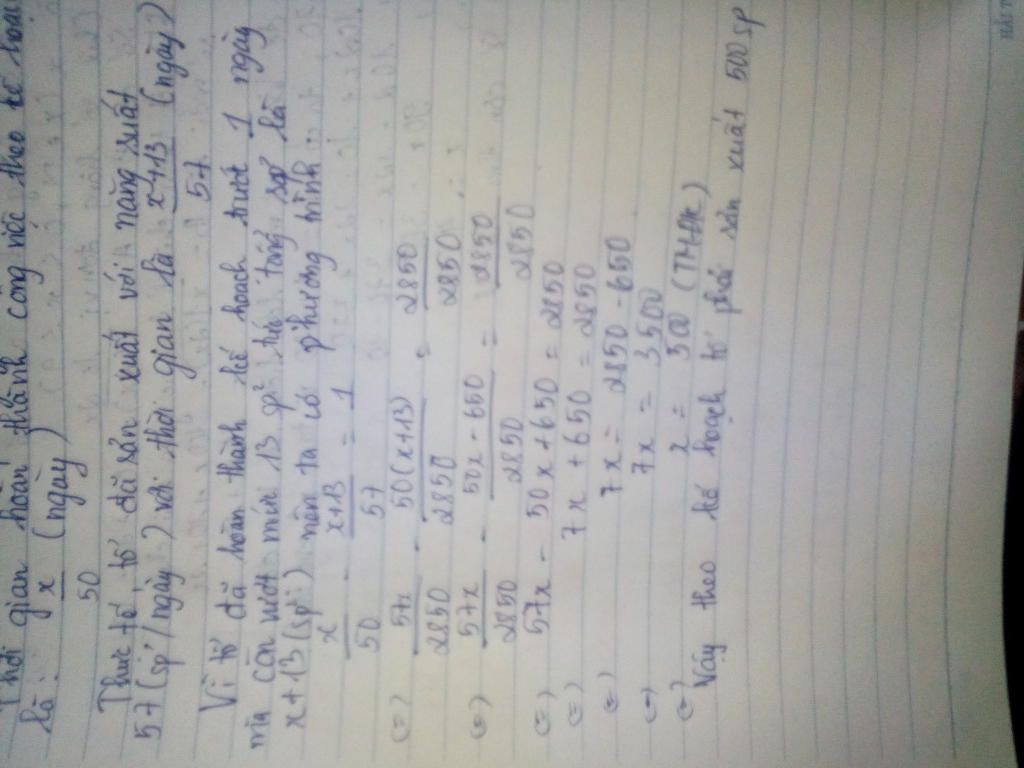 Thời gian hoàn thành công việc theo kế hoạch
là: x/50 (ngày)
Thực tế, tổ đã sản xuất với năng suất
57 (sp/ngày) với thời gian là x+13/57 (ngày)
Vì tổ đã hoàn thành kế hoạch trước 1 ngày
mà còn vượt mức 13 sp tức tổng sp là
x+13 (sp) nên ta có phương trình:
x/50 - x+13/57 = 1
(=) 57x/2850 - 50(x+13)/2850 = 2850/2850
(=) 57x/2850 - 50x-650/2850 = 2850/2850
(=) 57x - 50x + 650 = 2850
(=) 7x + 650 = 2850
(=) 7x = 2850 - 650
(=) 7x = 3500
(=) x = 500 (TMĐK)
Vậy theo kế hoạch tổ phải sản xuất 500 sp